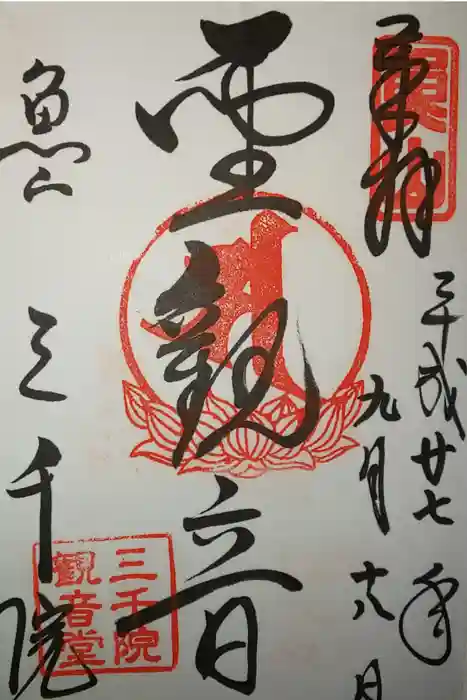 奉拝
魚山
平成廿七年
九月十八日
聖觀音
魚山
三千院
三千院
観音堂